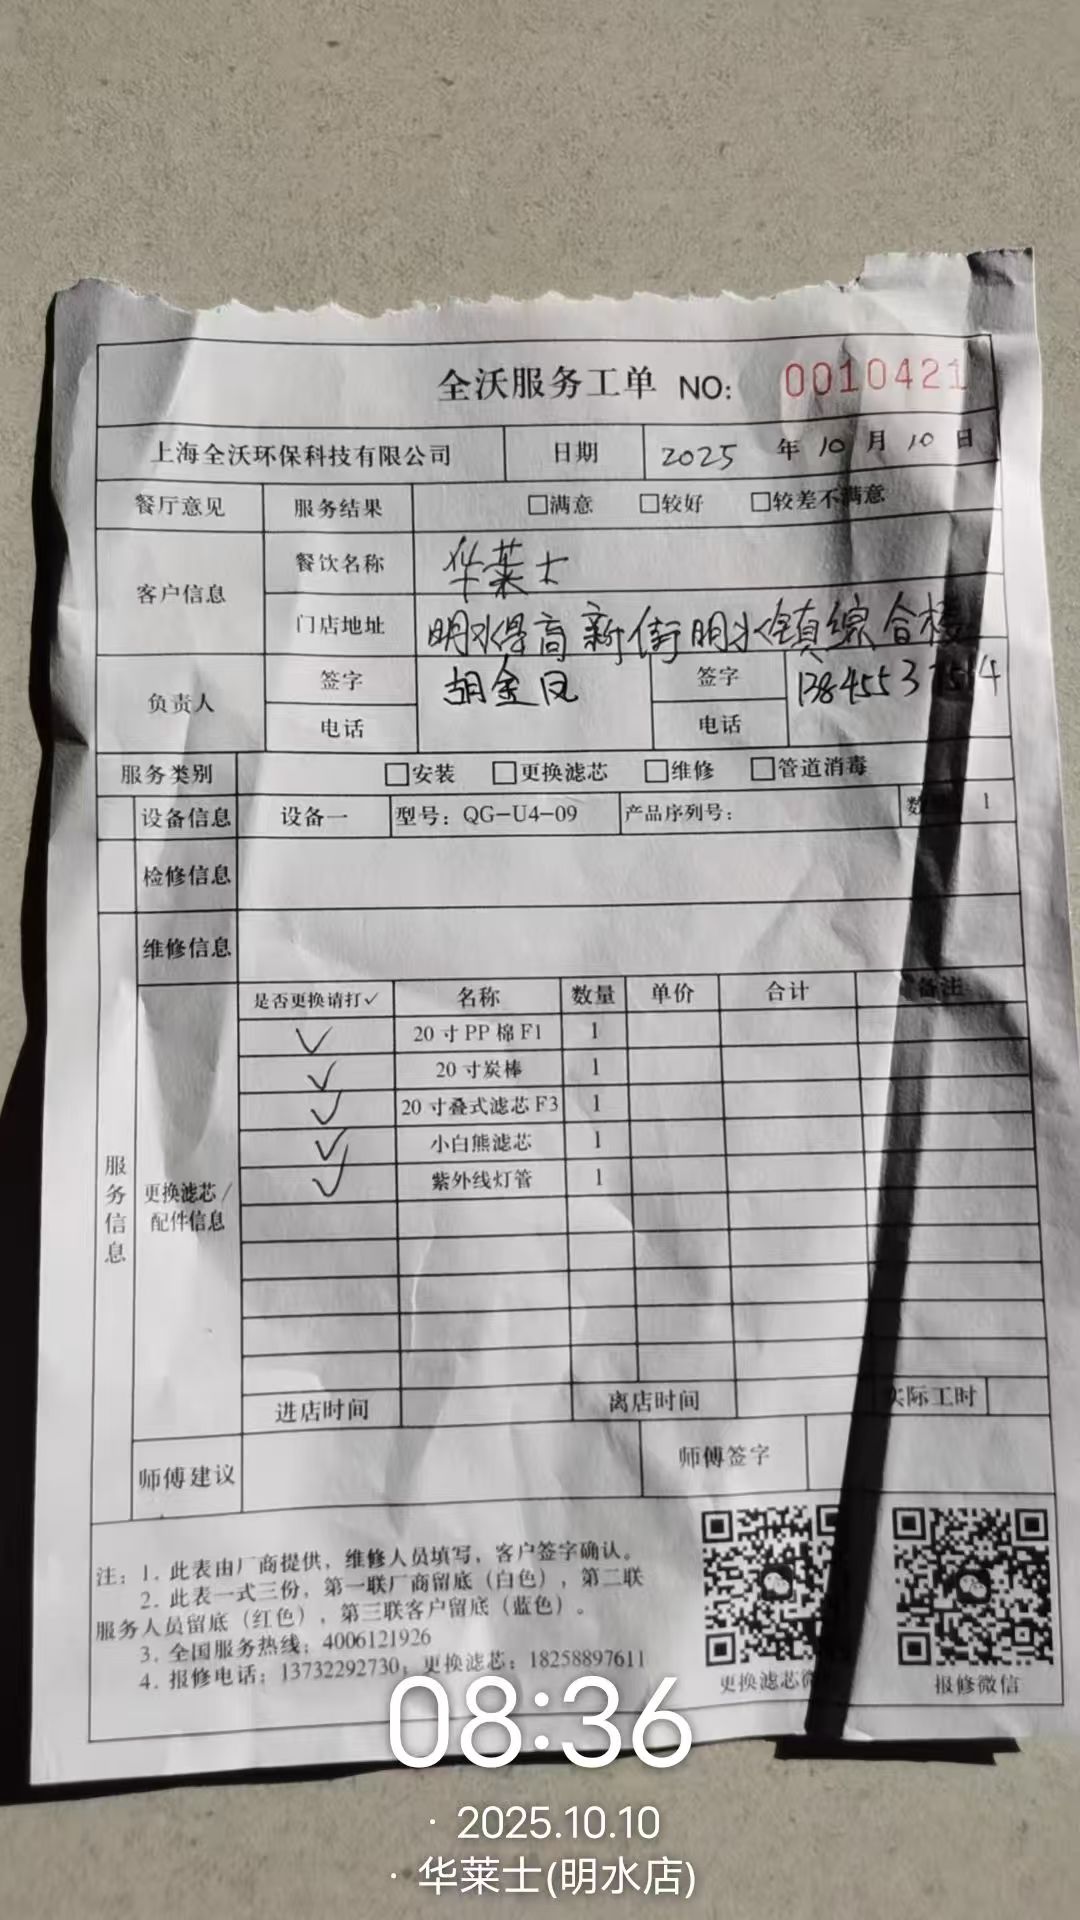 全沃服务工单 NO: 0010421
上海全沃环保科技有限公司 日期 2025 年 10 月 10 日
餐厅意见 服务结果 □满意 □较好 □较差不满意
客户信息 餐饮名称 华莱士
门店地址 明水县高新街明水镇综合楼
负责人 签字 胡金凤 签字
电话 电话
服务类别 □安装 □更换滤芯 □维修 □管道消毒
设备信息 设备一 型号：QG-U4-09 产品序列号： 数量 1
检修信息
维修信息
服务信息
更换滤芯/
配件信息
是否更换请打✓ 名称 数量 单价 合计 备注
✓ 20寸PP棉F1 1
✓ 20寸炭棒 1
✓ 20寸叠式滤芯F3 1
✓ 小白熊滤芯 1
✓ 紫外线灯管 1
进店时间 离店时间 实际工时
师傅建议 师傅签字
注：1. 此表由厂商提供，维修人员填写，客户签字确认。
2. 此表一式三份，第一联厂商留底（白色），第二联
服务人员留底（红色），第三联客户留底（蓝色）。
3. 全国服务热线：4006121926
4. 报修电话：13732292730；更换滤芯：18258897611
更换滤芯微
报修微信
08:36
· 2025.10.10
· 华莱士(明水店)